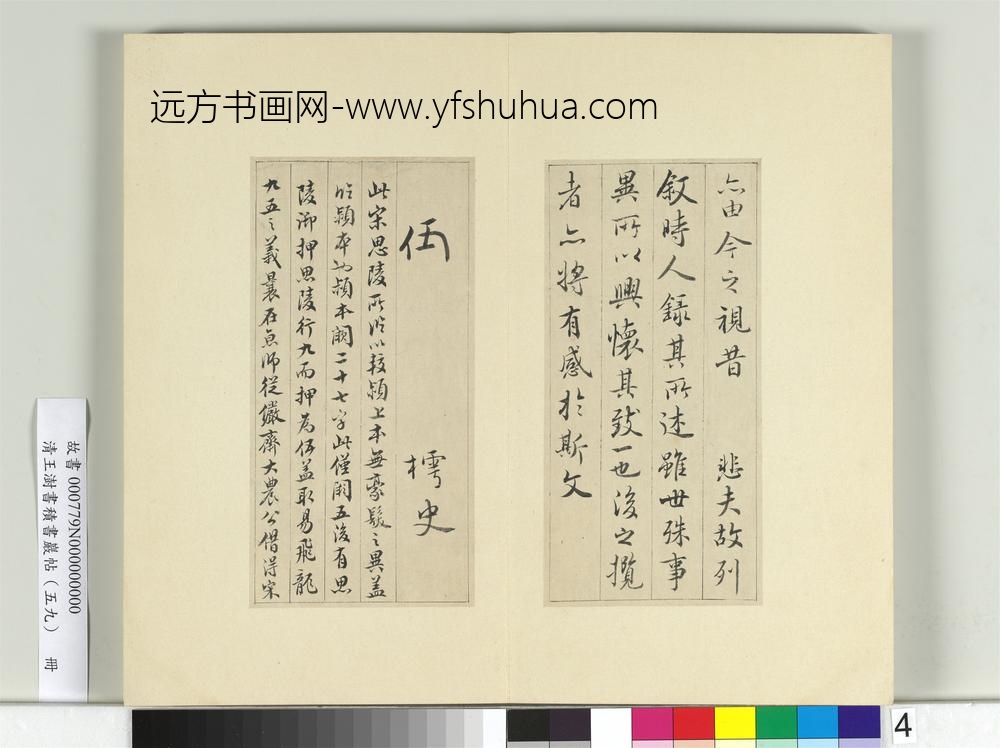 远方书画网-www.yfshuhua.com
亦由今之視昔 悲夫故列
叙時人錄其所述雖世殊事
異所以興懷其致一也後之攬
者亦將有感於斯文
伍 樗史
此宋思陵所臨以較潁上本無豪髮之異蓋
臨潁本也潁本闕二十七字此僅闕五後有思
陵御押思陵行九而押為伍蓋取易飛龍
九五之義曩在京師從儼齋大農公借得宋
故書000779N000000000
清王澍書積書巖帖(五九) 冊
4